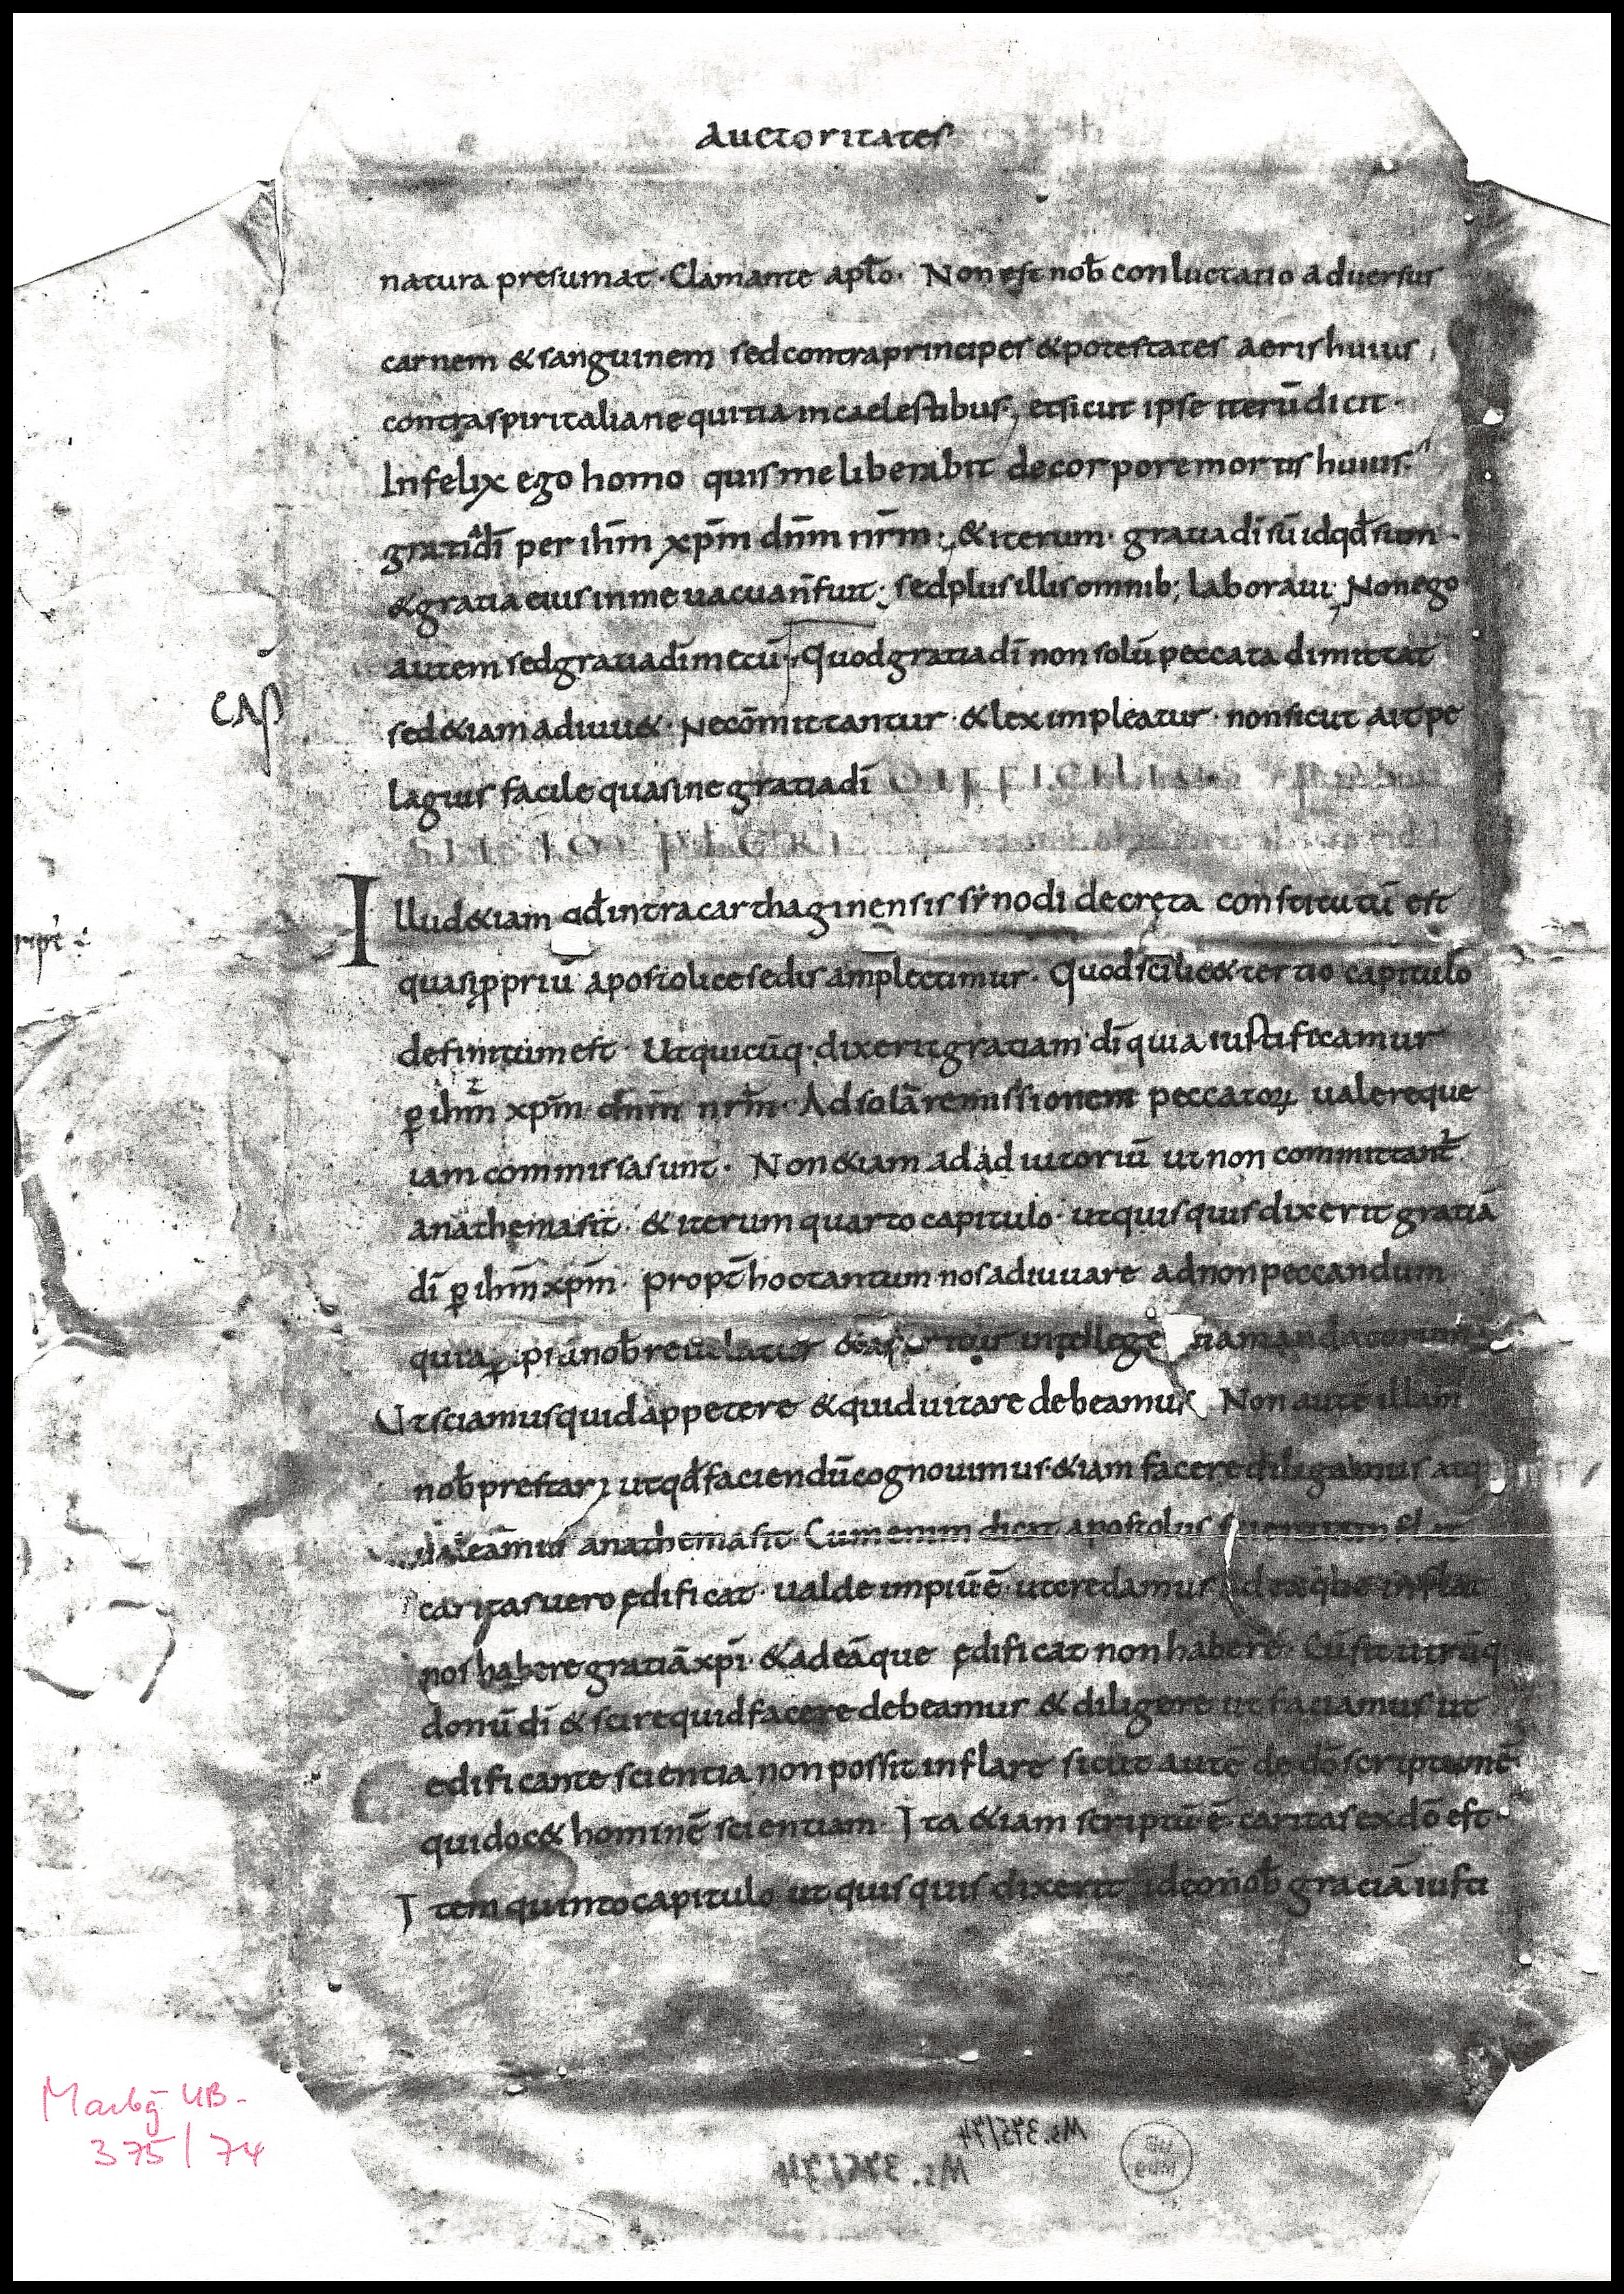 auctoritates
natura presumat · Clamante apl̄o · Non est nob̄ conluctatio aduersus
carnem & sanguinem sed contra principes & potestates aeris huius ,
contra spiritalia nequitia in caelestibus ; et sicut ipse iterū dicit ·
Infelix ego homo quis me liberabit de corpore mortis huius ·
gratia dī per ihm̄ xpm̄ dnm̄ nrm̄ ; & iterum · gratia dī sū id qđ sum ·
& gratia eius in me uacua n̄ fuit ; sed plus illis omnib; laboraui ; Non ego
autem sed gratia dī mecū · Quod gratia dī non solū peccata dimittat
CAP
sed &iam adiuu& · Ne cōmittantur · & lex impleatur · non sicut ait pe
lagius facile quasi ne gratia dī DIFFICILIUS
Illud &iam qđ intra carthaginensis sẏnodi decreta constitutū est
quasi ꝓpriū apostolice sedis amplectimur · Quod scilic& tertio capitulo
definitum est · Ut quicūq· dixerit gratiam dī qua iustificamur
ꝑ ihm̄ xpm̄ dnm̄ nrm̄ · Ad solā remissionem peccatoꝝ ualere que
iam commissa sunt · Non &iam ad adiutoriū ut non committant̄
anathema sit · & iterum quarto capitulo · ut quisquis dixerit gratiā
dī ꝑ ihm̄ xpm̄ · propt̄ hoc tantum nos adiuuare ad non peccandum
quia ꝑ ipsā nob̄ reuelatur intellege
Ut sciamus quid appetere & quid uitare debeamus Non autē illam
nob̄ prestari ut qđ faciendū cognouimus · &iam facere diligamus atq·
ualeamus anathema sit · Cum enim dicat apostolus scientia inflat
caritas uero ędificat · ualde impiū ē · ut credamus ad ea que inflat
nos habere gratiā xpī · & ad eā que ędificat non habere · Cū sit utrūq·
donū dī & scire quid facere debeamus & diligere ut faciamus ut
edificante scientia non possit inflare sicut autē de dō scriptum ē ·
qui doc& hominē scientiam · Ita &iam scriptū ē · caritas ex dō est ·
Item quinto capitulo ut quisquis dixerit ideo nob̄ gratiā iusti
Marbg UB-
375/74
Ms. 375/74
Ms. 375/74